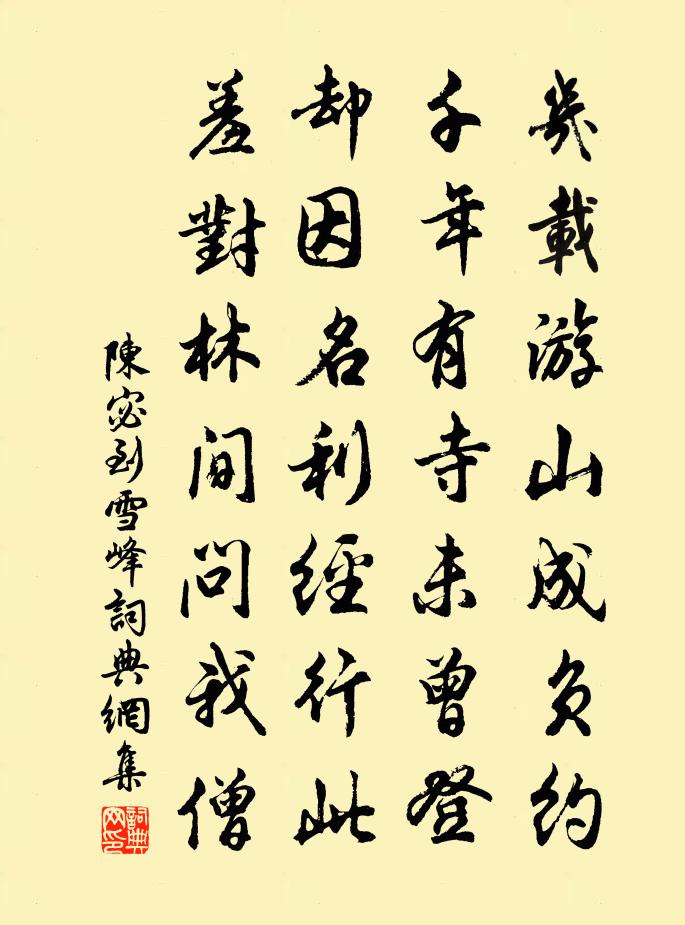 幾載游山成負約
千年有寺未曾登
却因名利經行此
羞對林間問我僧
陳宓到雪峰詞典網集
詞典網印